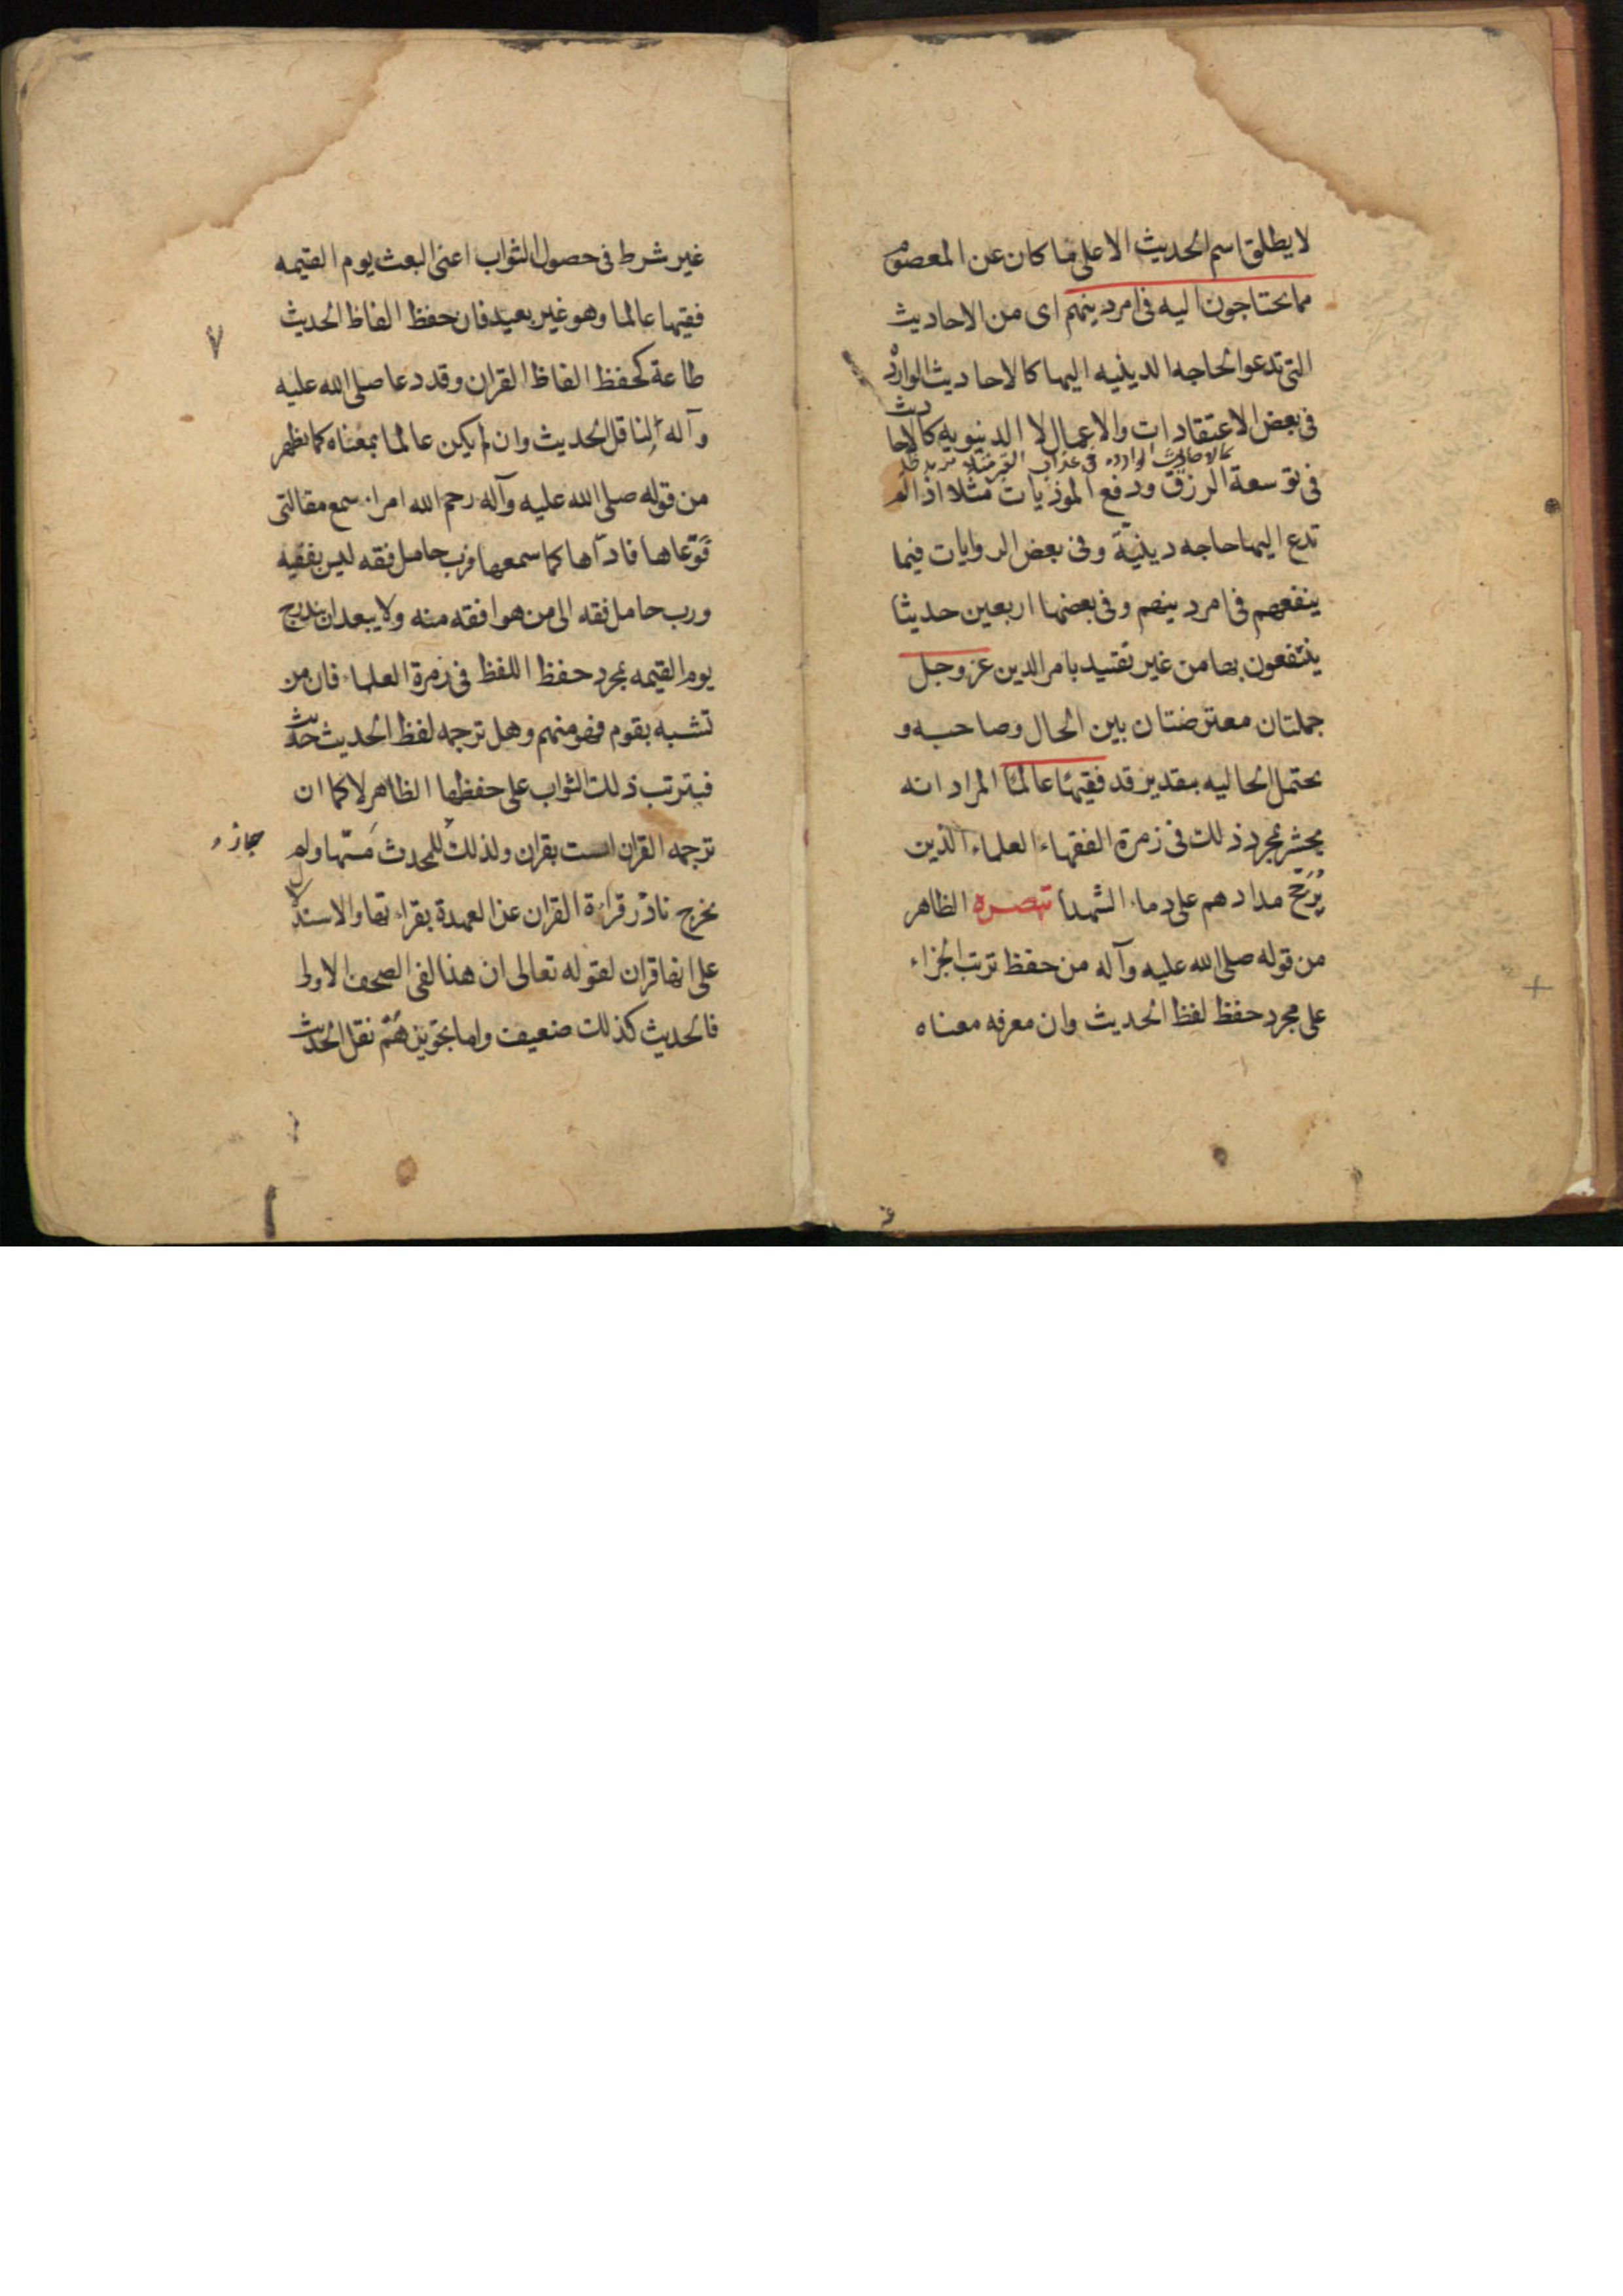 لا يطلق اسم الحديث الا على ما كان عن المعصوم
مما يحتاجون اليه فى امر دينهم اى من الاحاديث
التى تدعوا الحاجه الدينيه اليها كالاحاديث الوارده
فى بعض الاعتقادات والاعمال لا الدنيويه كالاحا
ديث
كالاحاديث الوارده فى عذاب القبر مثلا
فى توسعة الرزق ودفع الموذيات مثلا اذ الم
تدع اليها حاجه دينيّة وفى بعض الروايات فيما
ينفعهم فى امر دينهم وفى بعضها اربعين حديثا
ينتفعون بها من غير تقييد بامر الدين عز وجل
جملتان معترضتان بين الحال وصاحبه و
يحتمل الحاليه بتقدير قد فقيهًا عالمًا المراد انه
يحشر بمجرد ذلك فى زمرة الفقهاء العلماء الذين
يُرَجَّح مدادهم على دماء الشهدأ تبصره الظاهر
من قوله صلى الله عليه وآله من حفظ ترتب الجزاء
على مجرد حفظ لفظ الحديث وان معرفه معناه
غير شرط فى حصول الثواب اعنى البعث يوم القيمه
فقيها عالما وهو غير بعيد فان حفظ الفاظ الحديث
٧
طاعة كحفظ الفاظ القران وقد دعا صلى الله عليه
وآله لناقل الحديث وان لم يكن عالما بمعناه كما يظهر
من قوله صلى الله عليه وآله رحم الله امرا سمع مقالتى
فوعاها فادّاها كما سمعها فرب حامل فقه ليس بفقيه
ورب حامل فقه الى من هو افقه منه ولا يبعد ان يندرج
يوم القيمه بمجرد حفظ اللفظ فى زمرة العلماء فان من
تشبه بقوم فهو منهم وهل ترجمه لفظ الحديث حديث
فيترتب ذلك الثواب على حفظها الظاهر لا كما ان
ترجمه القران ليست بقران ولذلك للمحدث مسّها ولم
جاز
يخرج ناذر قراءة القران عن العهدة بقراءتها والاستدلا
ل
على انها قران لقوله تعالى ان هذا لفى الصحف الاولى
فالحديث كذلك ضعيف واما تجويزهُم نقل الحديث